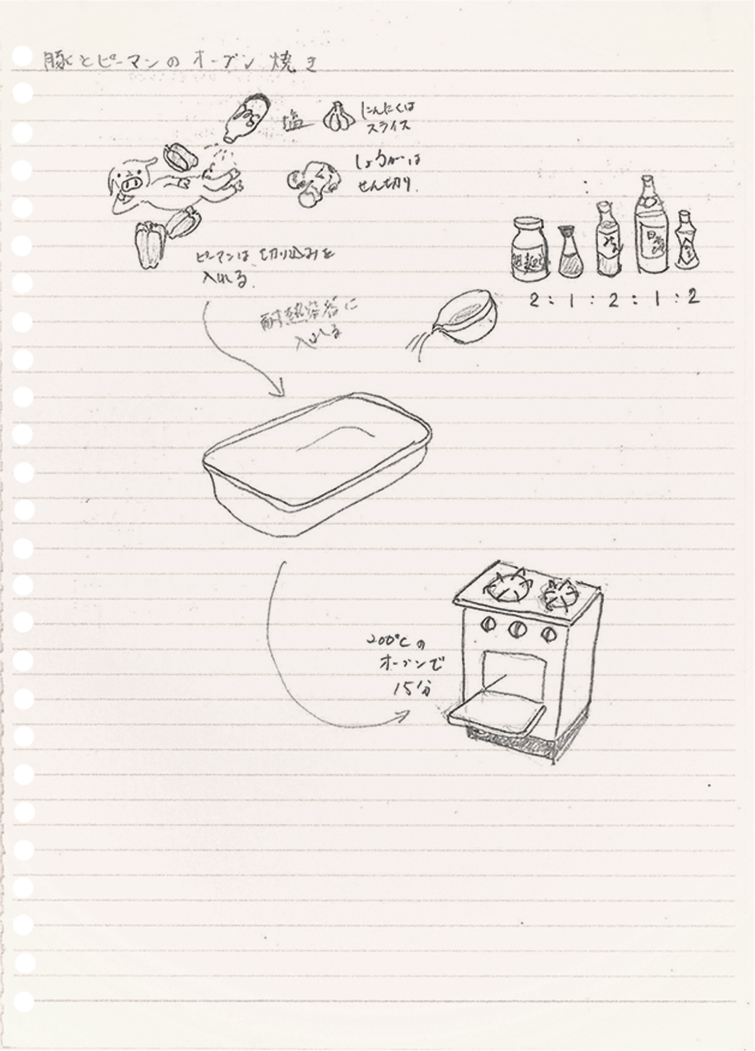 豚とピーマンのオーブン焼き
塩
にんにくは
スライス
しょうがは
せん切り
ピーマンは 切り込みを
入れる
耐熱容器に
入れる
2:1:2:1:2
200℃の
オーブンで
15分